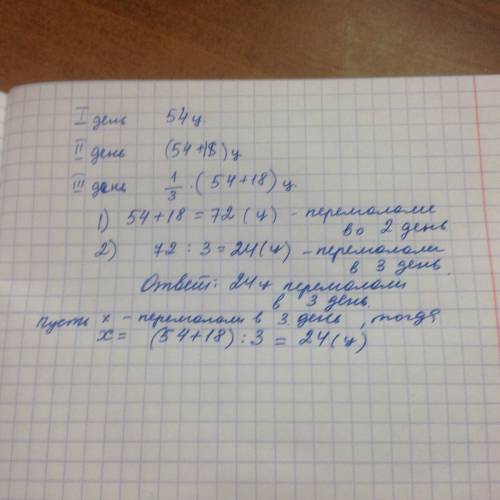 I день 54 ц.
II день (54+18) ц.
III день 1/3 · (54+18) ц.
1) 54+18=72 (ц) - перемолали
во 2 день
2) 72 : 3 = 24 (ц) - перемолали
в 3 день.
Ответ: 24 ц перемолали
в 3 день.
Пусть х - перемолали в 3 день, тогда
х = (54+18) : 3 = 24 (ц)